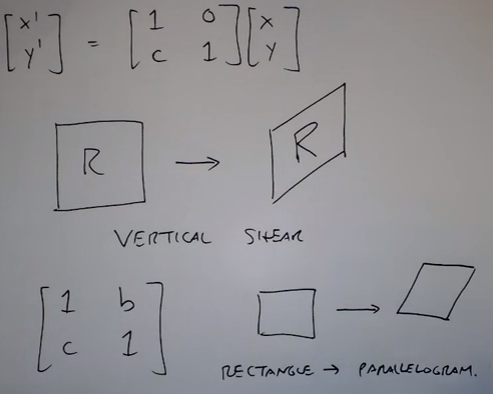 [x' y'] = [1 0 c 1] [x y]
R → R
VERTICAL SHEAR
[1 b c 1]
→
RECTANGLE → PARALLELOGRAM.